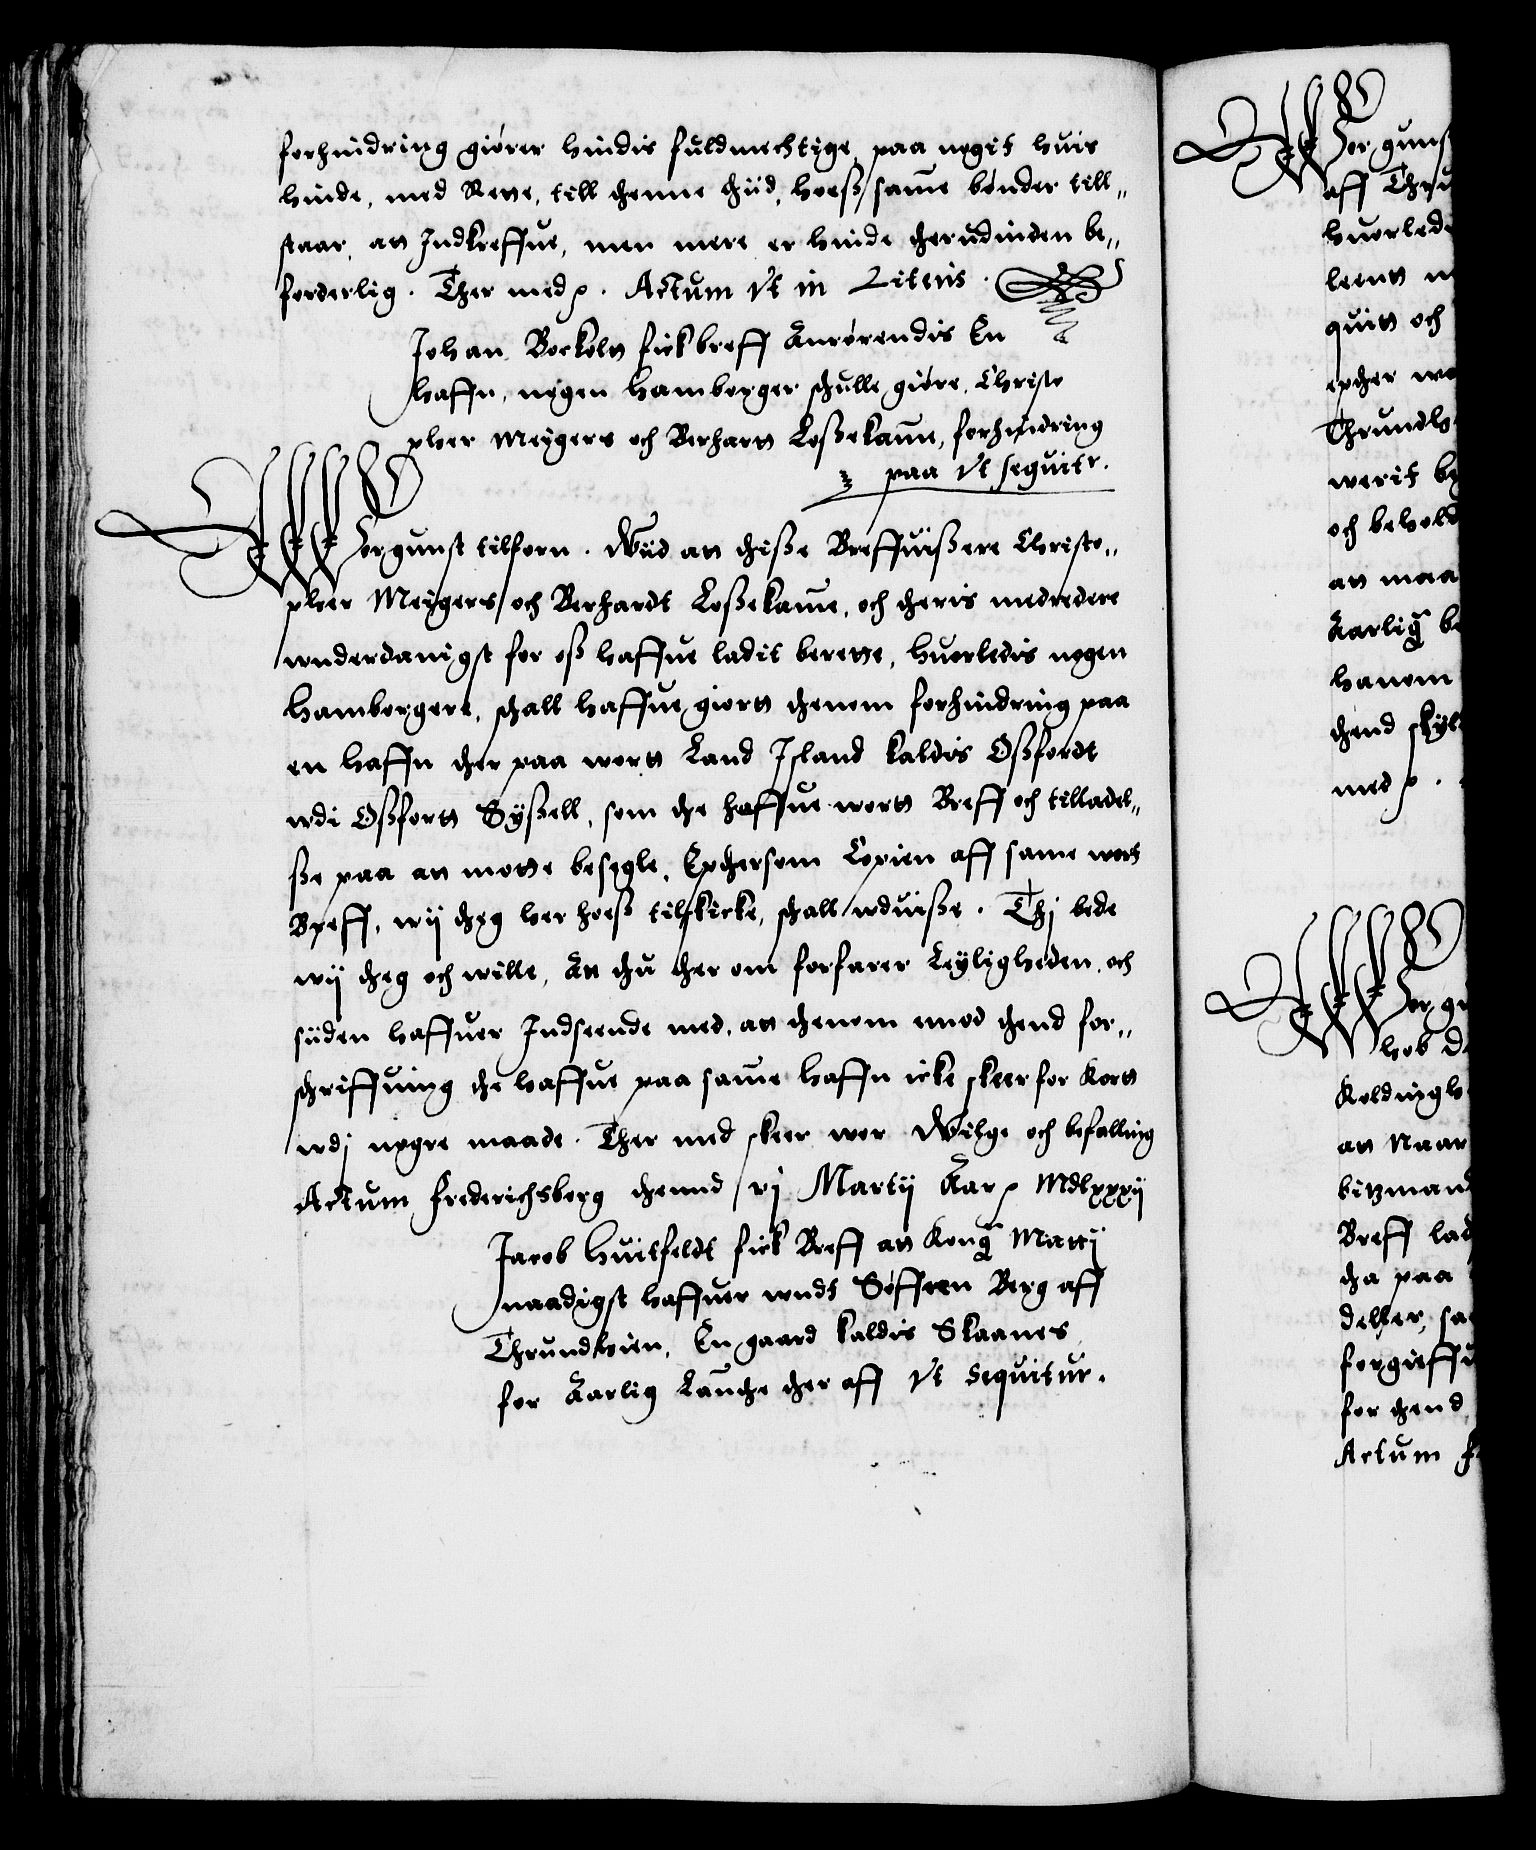 forhindring giører hindis fuldmechtige, paa nogit huis
hinde, med Rette, till thenne thiid, hoeß same bønder till„
staar, att Indkreffue, men mere er hinde therudinden be„
forderlig. Ther medt. Actum Vt in Literis.
Johan Bockoltt fick breff Anrørendis En
haffn, nogen Hamborger schulle giøre, Christo
pher Meygers och Berhartt Loßekanne, forhindring
paa Vt sequitr.
Wor gunst tilforn. Wiid att thiße Breffuißere Christo„
pher Meygers och Berhardt Loßekanne, och theris medredere
wnderdanigst for oß haffue ladit berette, huorledis nogen
Hamborgere, schall haffue giortt thenom forhindring paa
en haffn ther paa wortt Land Island kaldis Oßfordt
vdi Oßfortt Syßell, som the haffue wortt Breff och tilladel„
ße paa att motte besegle, Epthersom Copien aff same wort
Breff, wij theg her hoeß tilskicke, schall vduiße. Thj bede
wij theg och wille, At thu ther om forfarer Leyligheden, och
siiden haffuer Indseende med, att thenom emod thend for„
schriffuing the haffue paa same haffn icke skeer for kortt
vdj nogre maade. Ther med skeer wor Wilge och befalling
Actum Frederichsborg thennd vj Martij Aar p Mdlxxxij
Jacob Huitfeldt fick Breff att Kong Mattj
naadigst haffuer wndt Søffren Berg aff
Thrundhien, En gaard kaldis Skaanes
for Aarlig Landge ther aff Vt Sequitur.
Wor guns
aff Thru
huorlede
leentt
quitt och
epther
Thrundh
werit
och behold
att maa
Aarlig be
hanom
thend skyl
med p.
Wor gu
hob
Koldingh
att Naar
bitzmand
Breff lad
tha paa
deller, sa
forgieffu
for thend
Actum